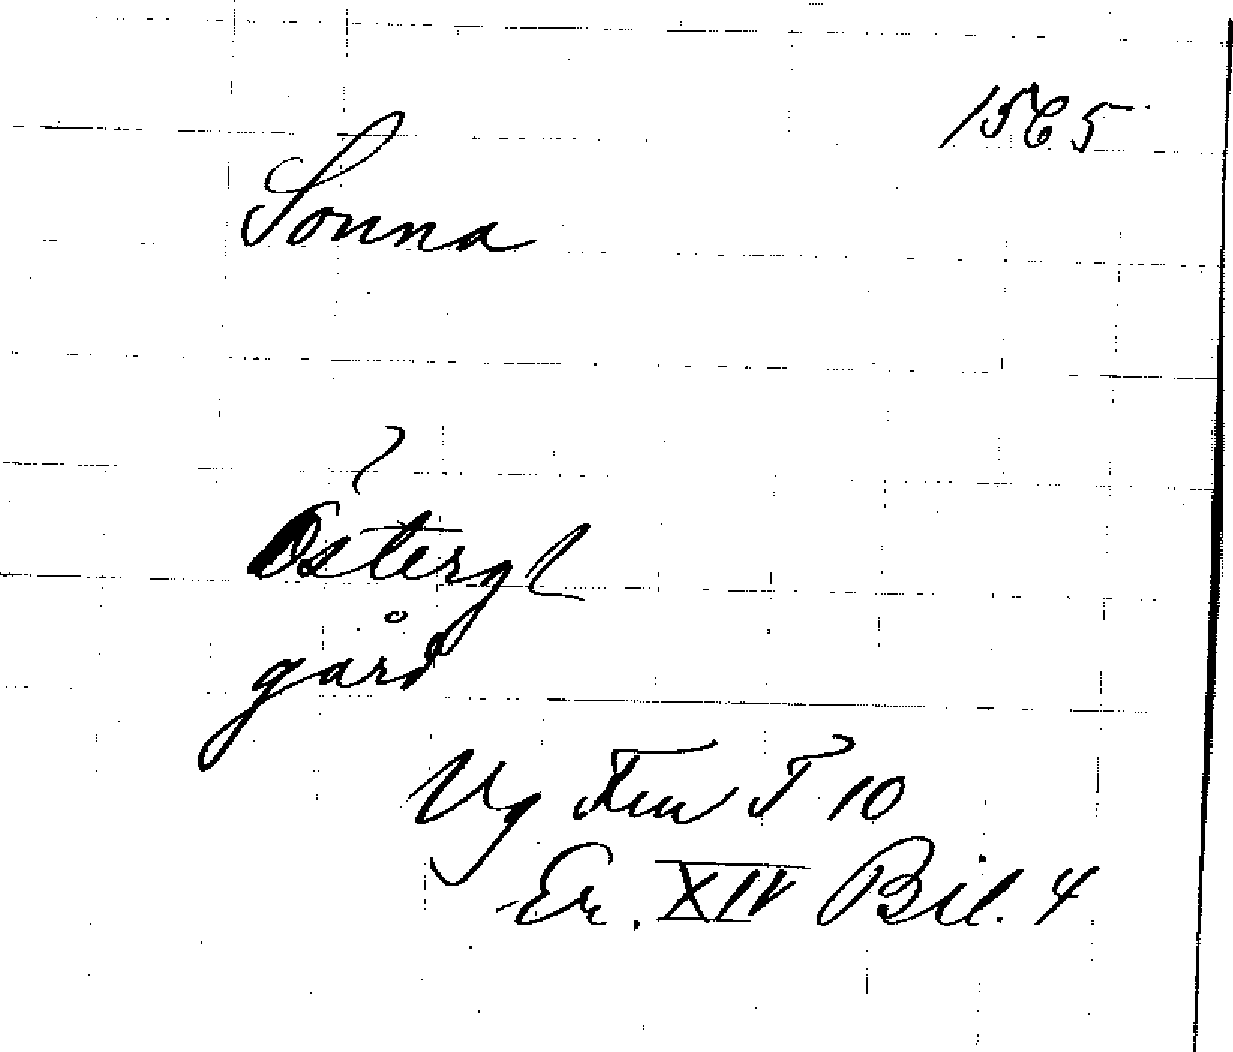 1565
Sonna
?
Östergl
gård
Vg Fru T 10
Er. XIV Bil. 4